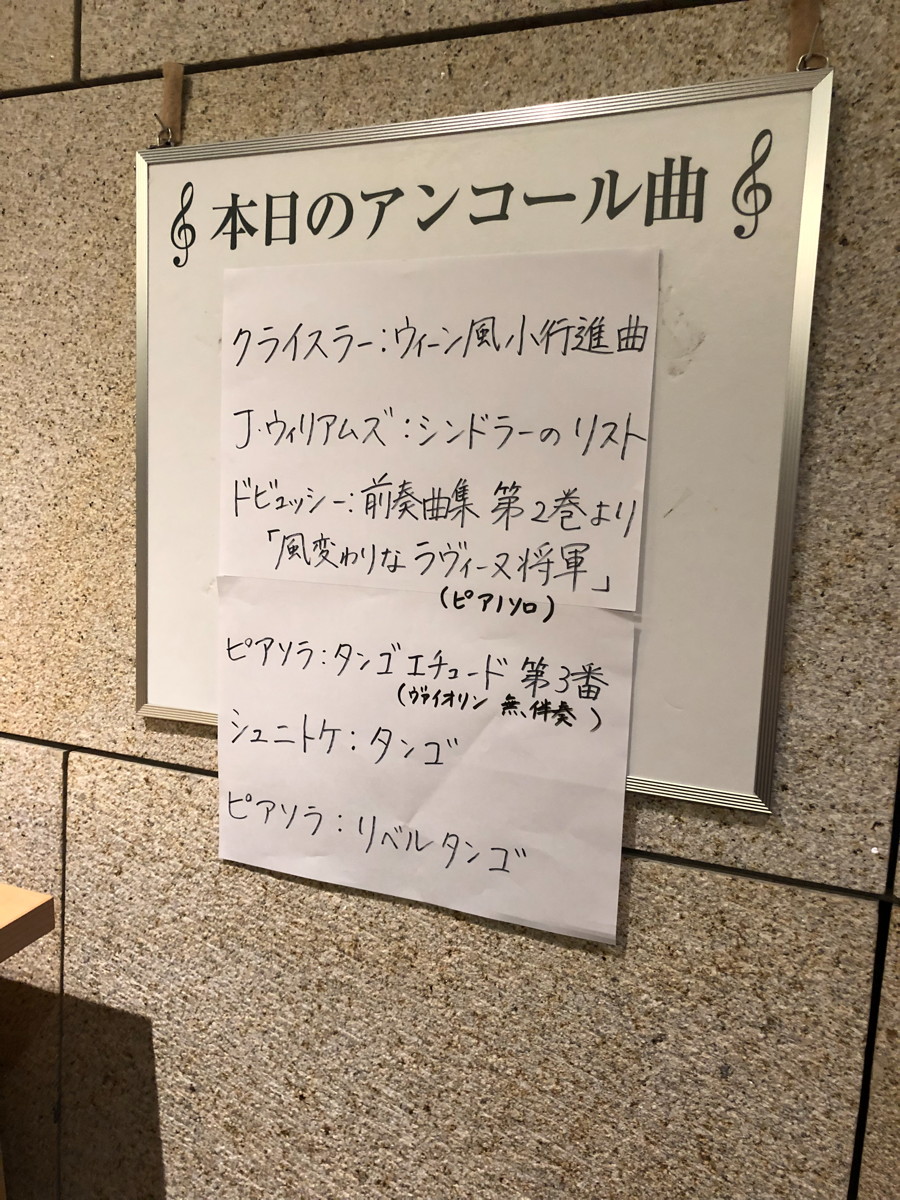 本日のアンコール曲
クライスラー:ウィーン風小行進曲
J.ウィリアムズ:シンドラーのリスト
ドビュッシー:前奏曲集 第2巻より
「風変わりなラヴィーヌ将軍」
(ピアノソロ)
ピアソラ:タンゴエチュード 第3番
(ヴァイオリン 無伴奏)
シュニトケ:タンゴ
ピアソラ:リベルタンゴ